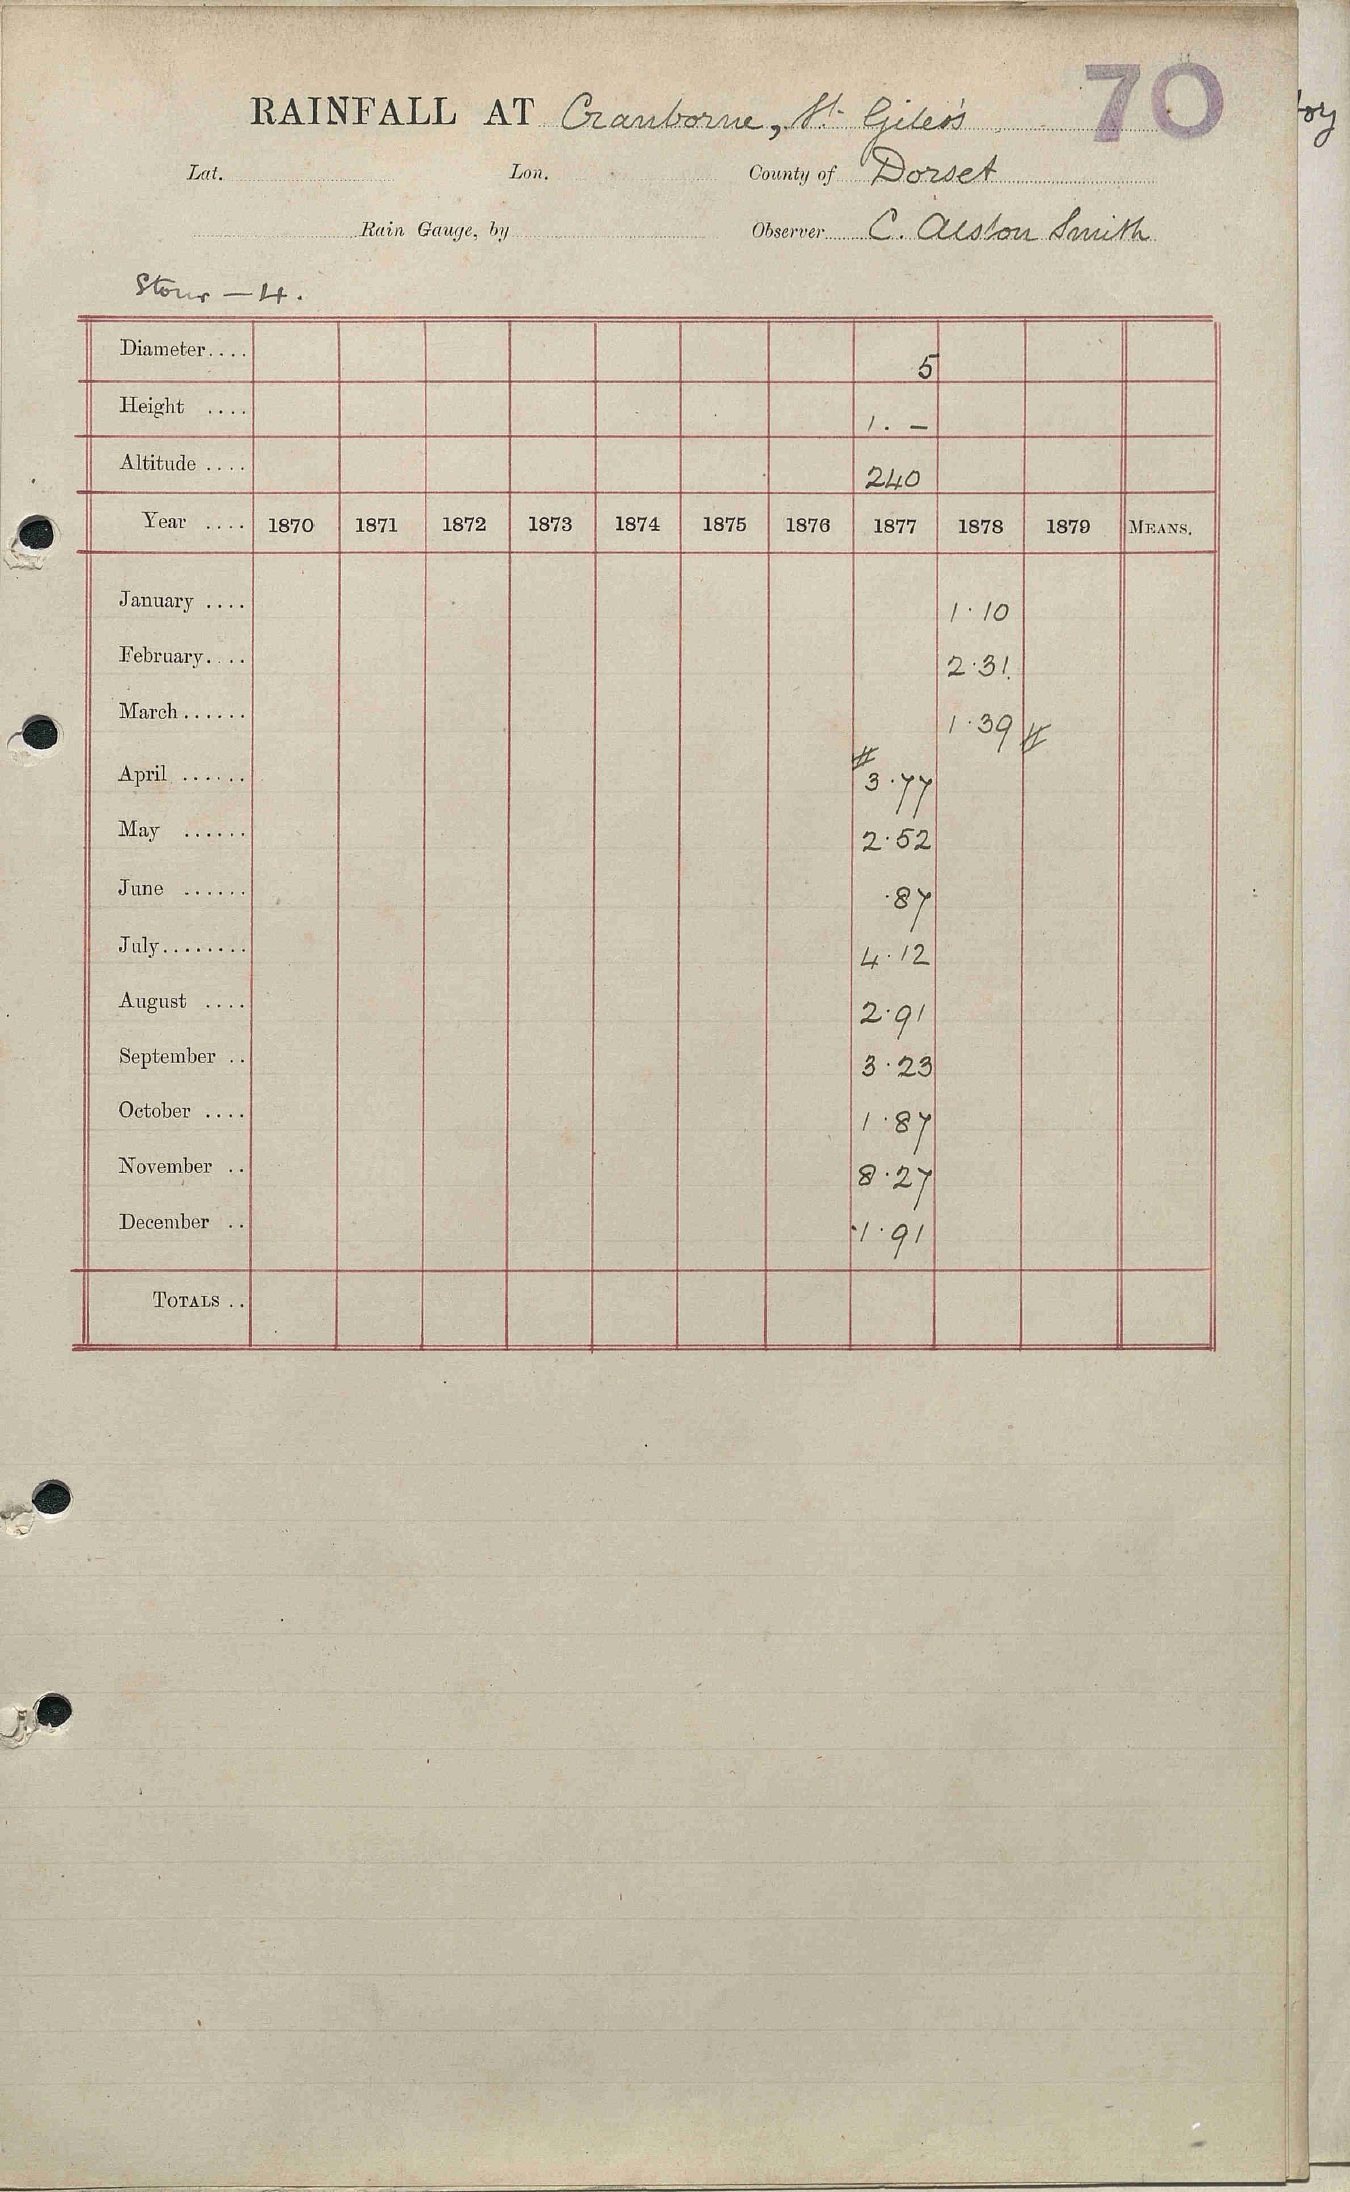 70
RAINFALL AT Cranborne, St. Giles's
Lat. Lon. County of Dorset
Rain Gauge, by Observer C. Alston Smith
Stour — 4.
Diameter.... 5
Height .... 1. —
Altitude .... 240
Year .... 1870 1871 1872 1873 1874 1875 1876 1877 1878 1879 MEANS.
January .... 1.10
February.... 2.31
March...... 1.39 #
April ...... # 3.77
May ...... 2.52
June ...... .87
July........ 4.12
August .... 2.91
September .. 3.23
October .... 1.87
November .. 8.27
December .. 1.91
TOTALS ..